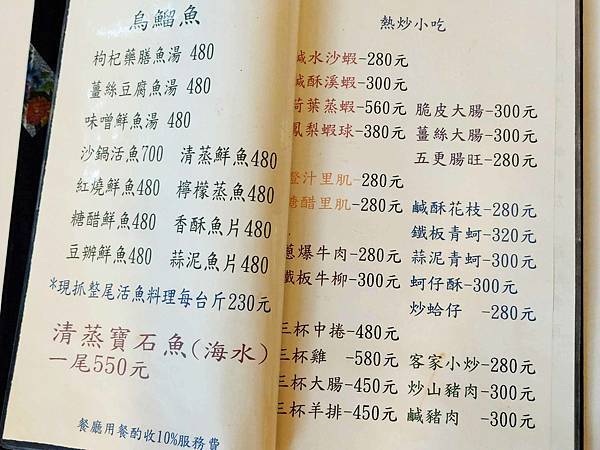 烏鰡魚
枸杞藥膳魚湯 480
薑絲豆腐魚湯 480
味噌鮮魚湯 480
沙鍋活魚700 清蒸鮮魚480
紅燒鮮魚480 檸檬蒸魚480
糖醋鮮魚480 香酥魚片480
豆瓣鮮魚480 蒜泥魚片480
*現抓整尾活魚料理每台斤230元
清蒸寶石魚(海水)
一尾550元
餐廳用餐酌收10%服務費
熱炒小吃
鹹水沙蝦-280元
鹹酥溪蝦-300元
荷葉蒸蝦-560元
鳳梨蝦球-380元
橙汁里肌-280元
糖醋里肌-280元
蔥爆牛肉-280元
鐵板牛柳-300元
三杯中捲-480元
三杯雞 -580元
三杯大腸-450元
三杯羊排-450元
脆皮大腸-300元
薑絲大腸-300元
五更腸旺-280元
鹹酥花枝-280元
鐵板青蚵-320元
蒜泥青蚵-300元
蚵仔酥-300元
炒蛤仔 -280元
客家小炒-280元
炒山豬肉-300元
鹹豬肉 -300元